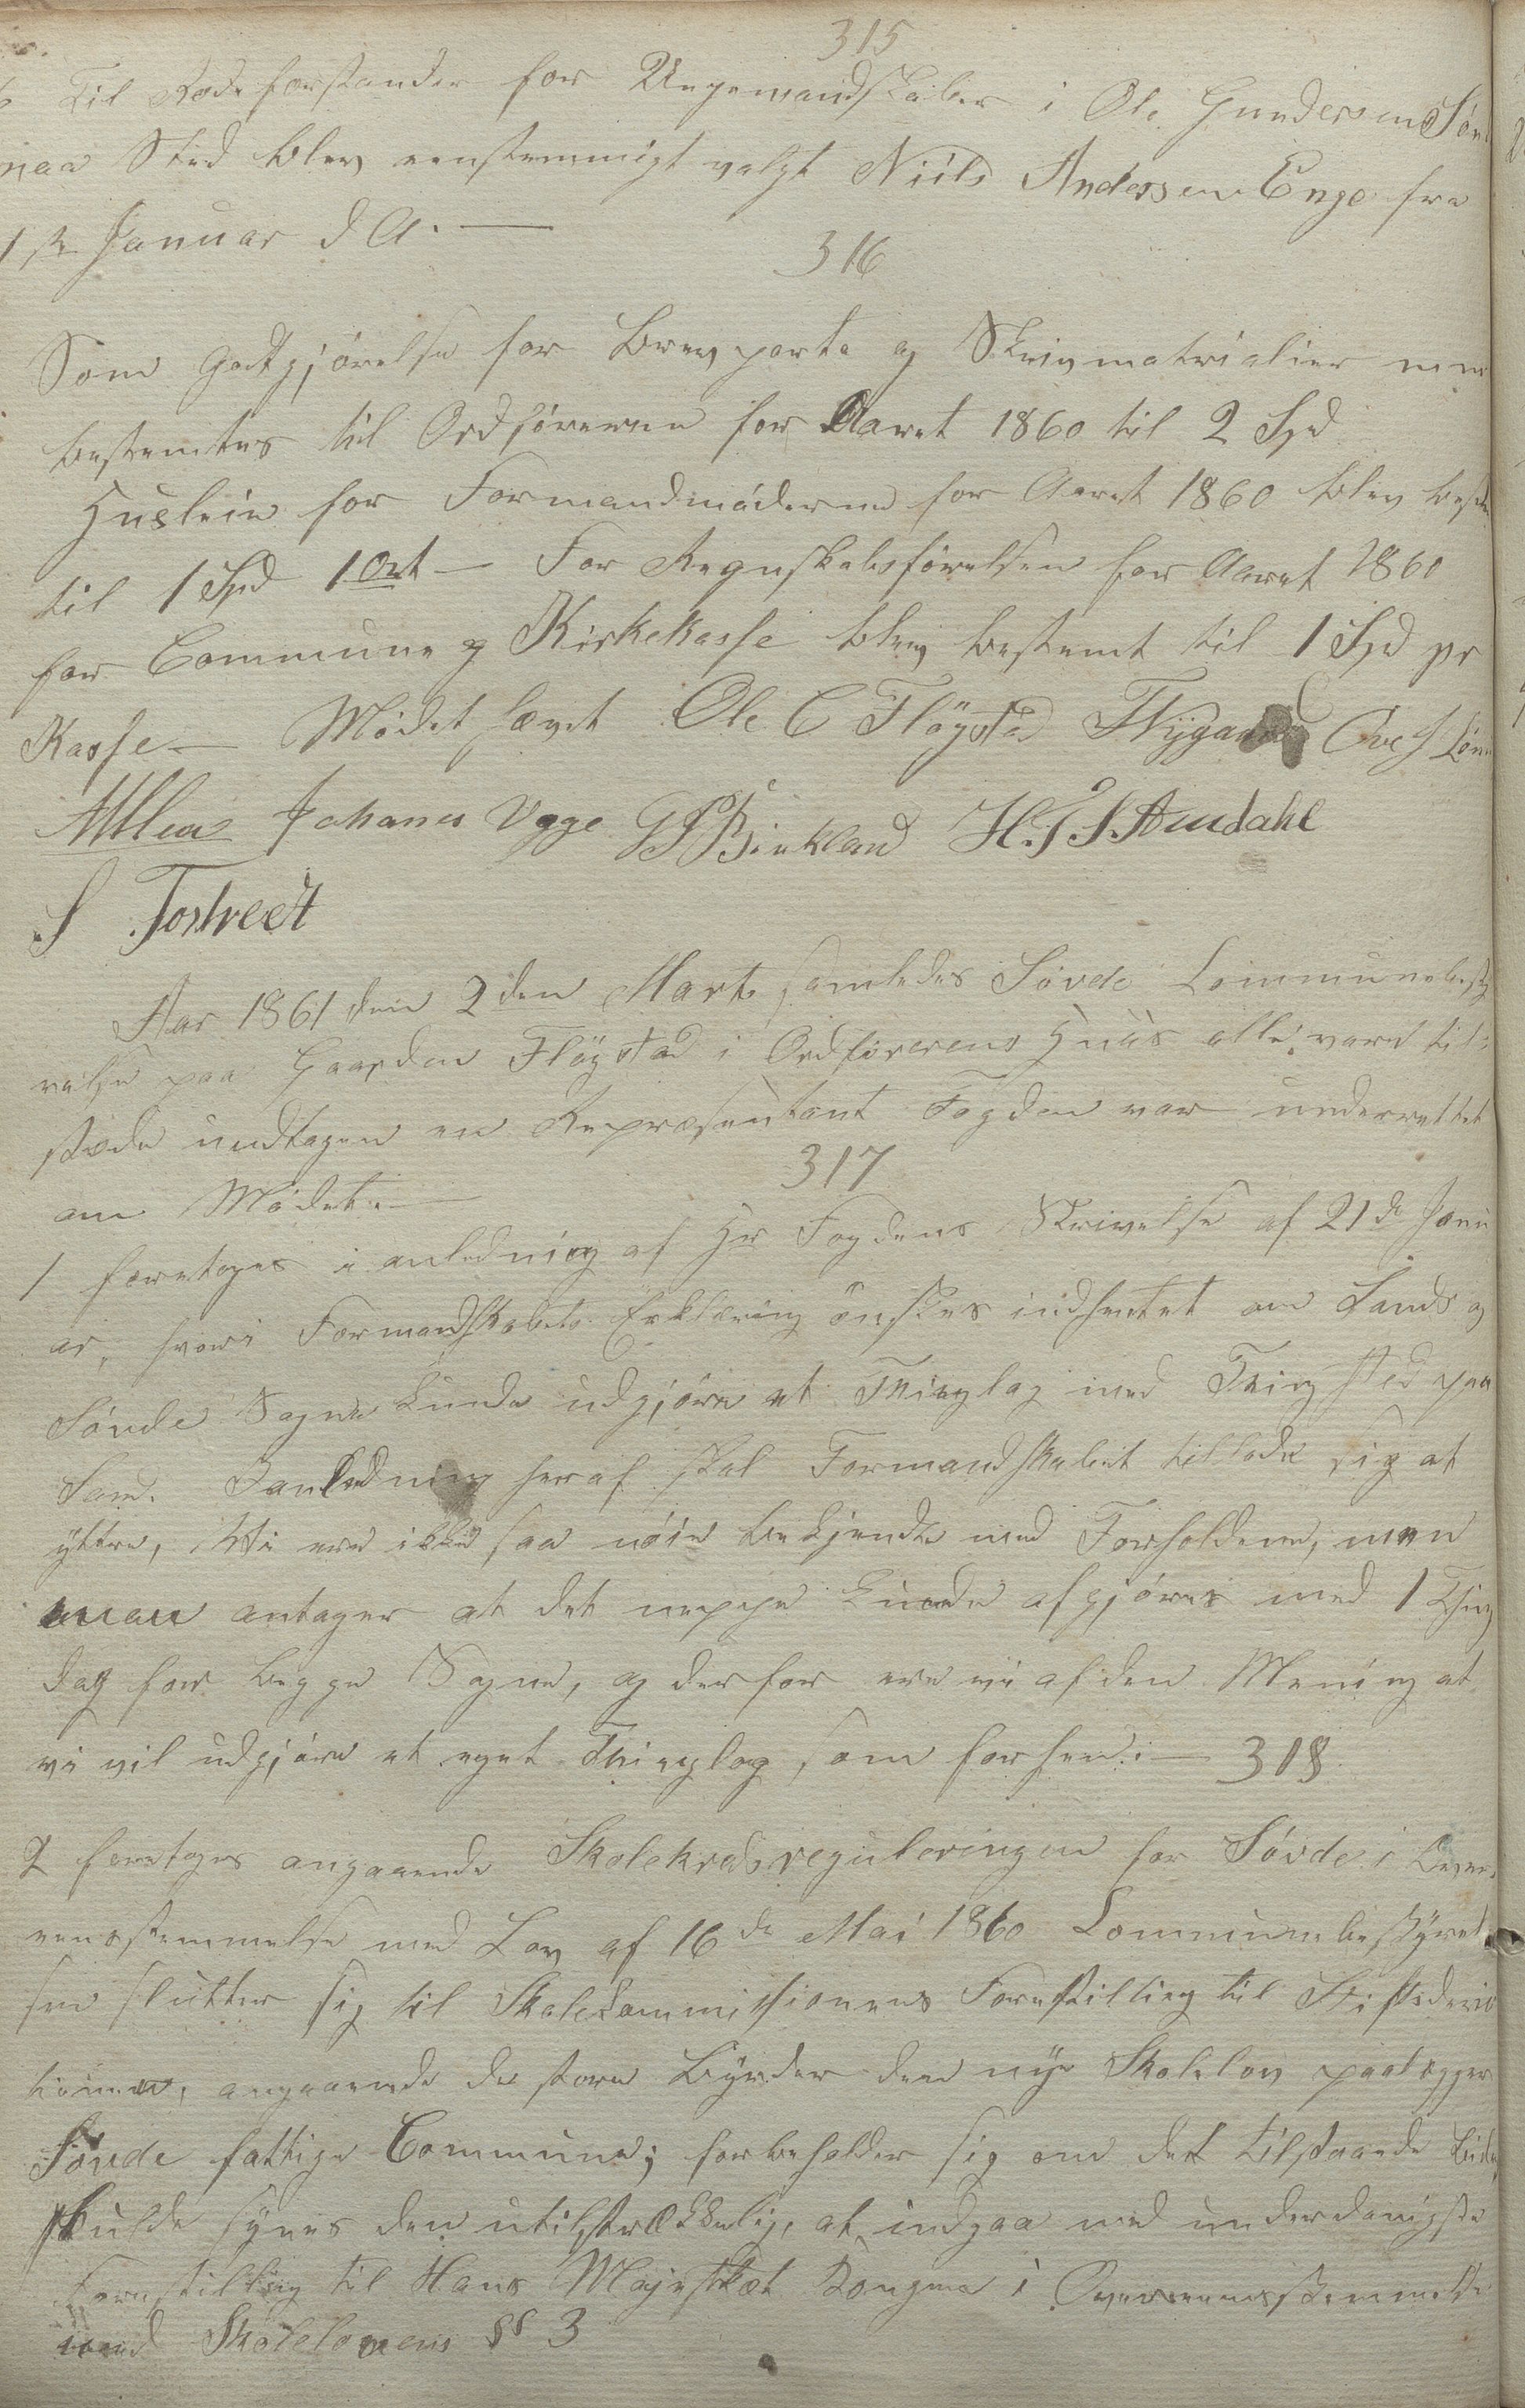 315
6 Til Rodeforstander for Ungemandskaber i Ole Gundersen Søn
naa Sted blev eenstemmigt valgt Niels Andersen Enge fra
1ste Januar d A. —
316
Som Godtgjørelse for Brevporto og Skrivmatrialier mm
bestemtes til Ordføreren for Aaret 1860 til 2 Spd
Husleie for Formandmøderne for Aaret 1860 blev bestem
til 1 Spd 1 Ort — For Regnskabsførelsen for Aaret 1860
for Commune og Kirkekasse blev bestemt til 1 Spd pr
Kasse — Mødet hævet Ole C Fløystad TNygaard Ove J Løn
Johanes Ugge GPBirkland H. J. S. Amdahl
S Tostveet
Aar 1861 den 2den Marts samledes Søvde Communebesty
relse paa Gaarden Fløystad i Ordførerens Huus alle vare til:
stede undtagen en Repræsentant Fogden var underrettet
om Mødet. —
317
1 foretoges i anledning af Hr Fogdens Skrivelse af 21de Janu
ar, hvori Formandskabets Erklæring önskes indhentet om Sands og
Søvde Sogne kunde udgjøre et Thinglag med Tingsted paa
Sand. I anledning heraf skal Formandskabet tillade sig at
yttre, Vi ere ikke saa nöie bekjendte med Forholdene, men
man antager at det neppe kunde afgjøres med 1 Thing
dag for begge Sogne, og derfor ere vi af den Mening at
vi vil udgjøre et eget Thinglag som forhen: — 318
2 foretoges angaaende Skolekredsreguleringen for Søvde i Over:
eensstemmelse med Lov af 16de Mai 1860 Communebestyrel:
sen slutter sig til Skolekommissionens Forestilling til Stiftsdirec
tionen, angaaende de store Byrder den nye Skolelov paalægger
Søvde fattige Commune; forbeholder sig om det tilstaaede Bidrag
skulde synes den utilstrækkelig, at indgaa med underdanigste
Forestilling til Hans Majestæt Kongen i Overeensstemmelse
med Skolelovens §§ 3